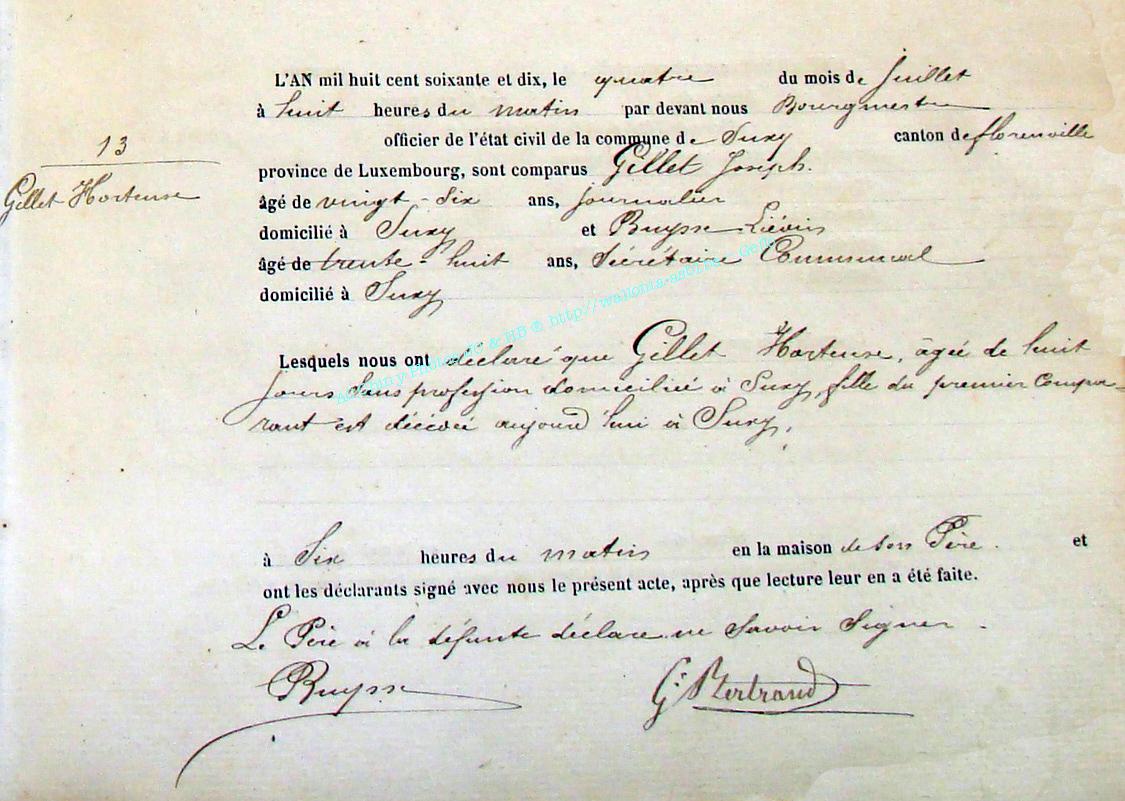 L'AN mil huit cent soixante et dix, le quatre du mois de Juillet
à huit heures du matin par devant nous Bourgmestre
officier de l'état civil de la commune de Suxy canton de florenville
13
province de Luxembourg, sont comparus Gillet Joseph.
Gillet Hortense
âgé de vingt-six ans, journalier
domicilié à Suxy et Buysse Liévin
âgé de trente-huit ans, Sécrétaire Communal
domicilié à Suxy
Lesquels nous ont déclaré que Gillet Hortense, âgée de huit
jours sans profession domiciliée à Suxy, fille du premier compa-
rant est décédée aujourd'hui à Suxy,
à Six heures du matin en la maison de son Père. et
ont les déclarants signé avec nous le présent acte, après que lecture leur en a été faite.
Le Père à la défunte déclare ne savoir Signer.
Buysse G. Bertrand
& HB © http//wallonia-asbl.be